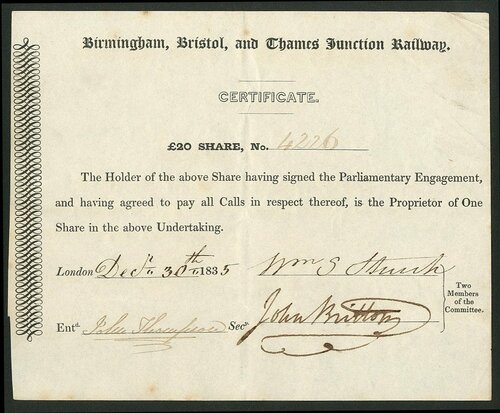 Birmingham, Bristol, and Thames Junction Railway.
CERTIFICATE.
£20 SHARE, No. 4226
The Holder of the above Share having signed the Parliamentary Engagement,
and having agreed to pay all Calls in respect thereof, is the Proprietor of One
Share in the above Undertaking.
London Decr. 30th 1835
Wm S
John Britton
Two
Members
of the
Committee.
Entd. John Thompson Secy.